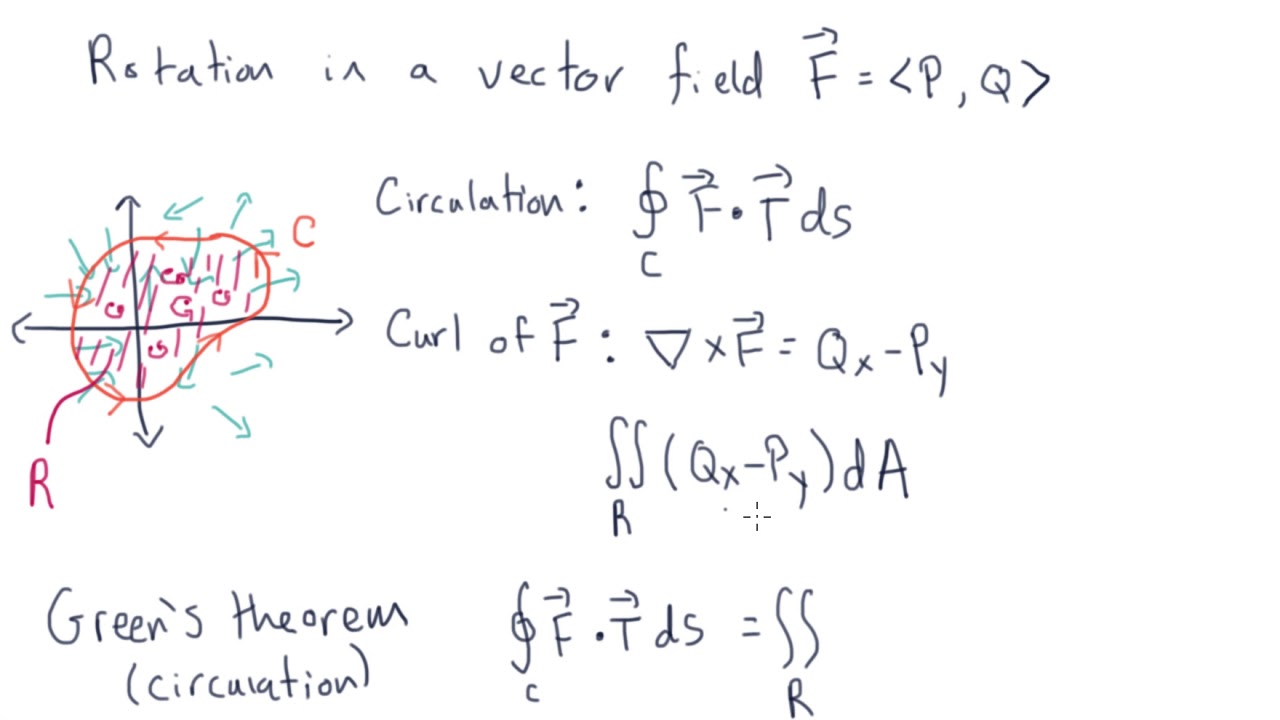 Rotation in a vector field F⃗ = <P, Q>
Circulation: ∮_C F⃗ · T⃗ ds
C
Curl of F⃗ : ∇ × F⃗ = Q_x - P_y
∬_R (Q_x - P_y) dA
R
Green's theorem ∮_C F⃗ · T⃗ ds = ∬_R
(circuation)